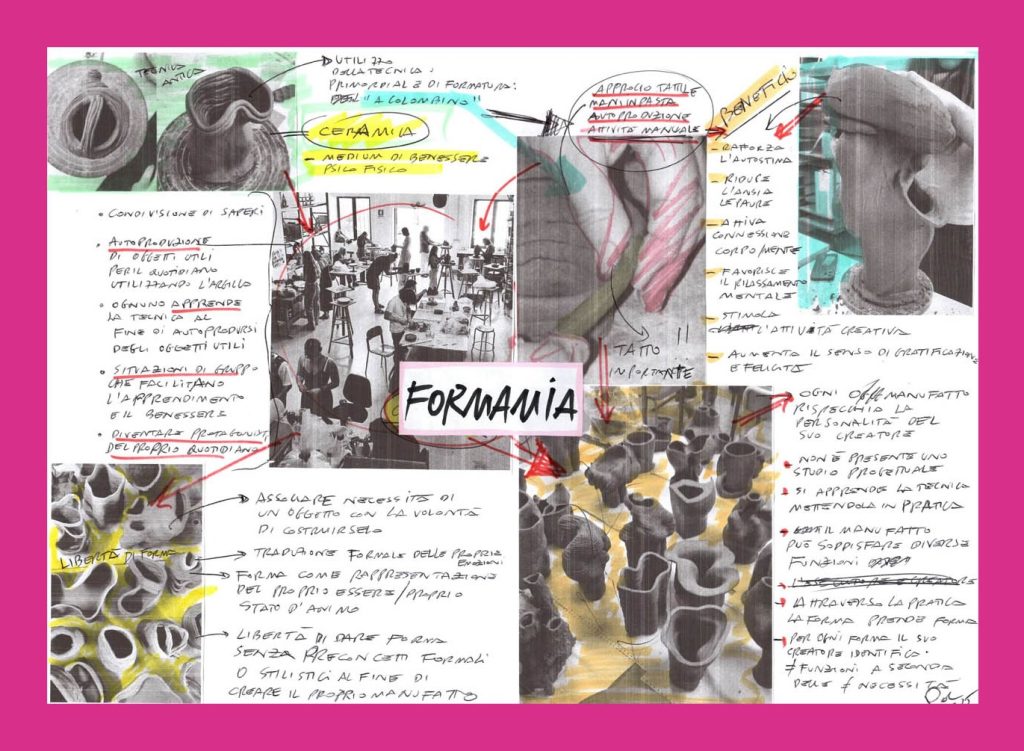 TECNICA
ANTICA
UTILIZZO
DELLA TECNICA
PRIMORDIALE DI FORMATURA:
"A COLOMBINO"
CERAMICA
- MEDIUM DI BENESSERE
PSICO FISICO
APPROCIO TATTILE
MANI IN PASTA
AUTOPRODUZIONE
ATTIVITÀ MANUALE
BENEFICI
- RAFFORZA
L'AUTOSTIMA
- RIDUCE
L'ANSIA
LE PAURE
- ATTIVA
CONNESSIONE
CORPO/MENTE
- FAVORISCE
IL RILASSAMENTO
MENTALE
- STIMOLA
L'ATTIVITÀ CREATIVA
- AUMENTA IL SENSO DI GRATIFICAZIONE
E FELICITÀ
• CONDIVISIONE DI SAPERI
• AUTOPRODUZIONE
DI OGGETTI UTILI
PER IL QUOTIDIANO
UTILIZZANDO L'ARGILLA
• OGNUNO APPRENDE
LA TECNICA AL
FINE DI AUTOPRODURSI
DEGLI OGGETTI UTILI
• SITUAZIONI DI GRUPPO
CHE FACILITANO
L'APPRENDIMENTO
E IL BENESSERE
• DIVENTARE PROTAGONISTI
DEL PROPRIO QUOTIDIANO
TATTO !!
IMPORTANTE
FORMAMIA
LIBERTÀ DI FORMA
ASSOCIARE NECESSITÀ DI
UN OGGETTO CON LA VOLONTÀ
DI COSTRUIRSELO
TRADUZIONE FORMALE DELLE PROPRIE
EMOZIONI
FORMA COME RAPPRESENTAZIONE
DEL PROPRIO ESSERE/PROPRIO
STATO D'ANIMO
LIBERTÀ DI DARE FORMA
SENZA PRECONCETTI FORMALI
O STILISTICI AL FINE DI
CREARE IL PROPRIO MANUFATTO
• OGNI MANUFATTO
RISPECCHIA LA
PERSONALITÀ DEL
SUO CREATORE
• NON È PRESENTE UNO
STUDIO PROGETTUALE
• SI APPRENDE LA TECNICA
METTENDOLA IN PRATICA
• IL MANUFATTO
PUÒ SODDISFARE DIVERSE
FUNZIONI
• ATTRAVERSO LA PRATICA
LA FORMA PRENDE FORMA
• PER OGNI FORMA IL SUO
CREATORE IDENTIFICA
≠ FUNZIONI A SECONDA
DELLE ≠ NECESSITÀ